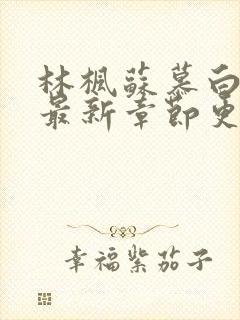 林楓蘇慕白
最新章節更
幸福紫茄子